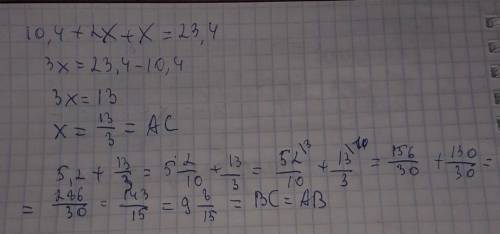 10,4 + 2x + x = 23,4
3x = 23,4 - 10,4
3x = 13
x = 13/3 = AC
5,2 + 13/3 = 5 2/10 + 13/3 = 52/10 \3 + 13/3 \10 = 156/30 + 130/30 =
= 286/30 = 143/15 = 9 8/15 = BC = AB